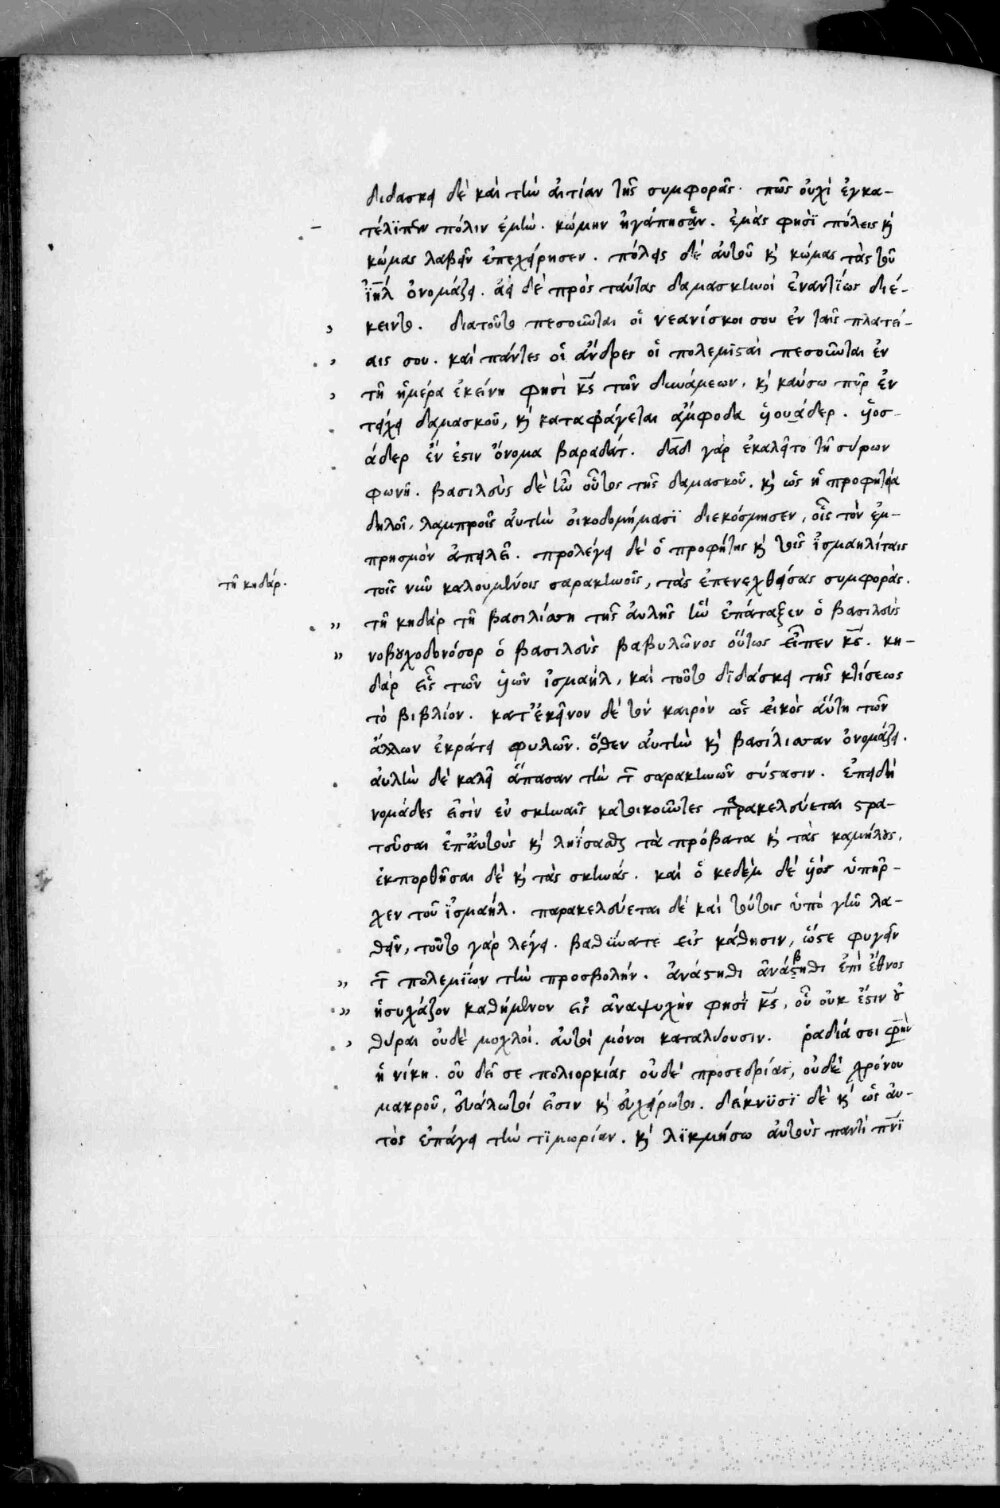 διδάσκει δὲ καὶ τὴν αἰτίαν τῆς συμφορᾶς. πῶς οὐχὶ ἐγκα-
τέλϊπεν πόλιν ἐμὴν. κώμην ἠγάπησαν. ἐμὰς φησῒ πόλεις κ
κώμας λαβεῖν ἐπεχείρησεν. πόλεις δὲ αὐτοῦ κ κώμας τὰς τοῦ
ϊηλ ὀνομάζει. ἀεὶ δὲ πρὸς ταύτας δαμασκηνοὶ ἐναντΐως διέ-
κειντο. διατοῦτο πεσοῦνται οἱ νεανίσκοι σου ἐν ταῖς πλατεί-
αις σου. καὶ πάντες οἱ ἄνδρες οἱ πολεμισταὶ πεσοῦνται ἐν
τῇ ἡμέρα ἐκείνη φησὶ κς τῶν δυνάμεων. κ καύσω πῦρ ἐν
τείχει δαμασκοῦ, κ καταφάγεται ἄμφοδα ὑουάδερ. ὑὸς
άδερ ἕν ἐστιν ὄνομα βαραδάτ. δαδ γὰρ ἐκαλεῖτο τῇ σύρων
φωνῇ. βασιλεὺς δὲ ἦν οὗτος τῆς δαμασκοῦ. κ ὡς ἡ προφητεία
δηλοῖ, λαμπροῖς αὐτὴν οἰκοδομήμασϊ διεκόσμησεν, οἷς τὸν ἐμ-
πρησμὸν ἀπειλεῖ. προλέγει δὲ ὁ προφήτης κ τοῖς ἰσμαηλίταις
τοῖς νῦν καλουμένοις σαρακηνοῖς, τὰς ἐπενεχθείσας συμφορὰς.
τῇ κηδάρ.
τῇ κηδὰρ τῇ βασιλίσση τῆς αὐλῆς ἣν ἐπάταξεν ὁ βασιλεὺς
νοβουχοδονόσορ ὁ βασιλεὺς βαβυλῶνος οὕτως εἶπεν κς. κη-
δὰρ εἷς τῶν ὑῶν ἰσμαήλ, καὶ τοῦτο δϊδάσκει τῆς κτίσεως
τὸ βιβλίον. κατ᾽ ἐκεῖνον δὲ τὸν καιρὸν ὡς εἰκὸς αὕτη τῶν
ἄλλων ἐκράτει φυλῶν. ὅθεν αὐτὴν κ βασίλισσαν ὀνομάζει.
αὐλὴν δὲ καλεῖ ἅπασαν τὴν τ σαρακηνῶν σύστασιν. ἐπειδὴ
νομάδες εἰσὶν ἐν σκηναῖς κατοικοῦντες παρακελεύεται στρα-
τεῦσαι ἐπ᾽ αὐτοὺς κ ληΐσασθαι τὰ πρόβατα κ τὰς καμήλους.
ἐκπορθῆσαι δὲ κ τὰς σκηνάς. καὶ ὁ κεδὲμ δὲ ὑὸς ὑπῆρ-
χεν τοῦ ϊσμαήλ. παρακελεύεται δὲ καὶ τούτοις ὑπὸ γῆν λα-
θεῖν, τοῦτο γὰρ λέγει. βαθύνατε εἰς κάθησιν, ὥστε φυγεῖν
τ πολεμΐων τὴν προσβολήν. ἀνάστηθι ἀνάβηθι ἐπὶ ἔθνος
ἡσυχάζον καθήμενον εἰς ἀναψυχὴν φησὶ κς, οὗ οὐκ ἔστιν οὐ
θύραι οὐδὲ μοχλοί. αὐτοὶ μόνοι καταλύουσιν. ῥαδία σοι φησὶν
ἡ νίκη. οὐ δεῖ σε πολιορκίας οὐδὲ προσεδρίας, οὐδὲ χρόνου
μακροῦ, εὐάλωτοί εἰσιν κ εὐχείρωτοι. δείκνυσϊ δὲ κ ὡς αὐ-
τὸς ἐπάγει τὴν τϊμωρίαν. κ λϊκμήσω αὐτοὺς παντὶ πνϊ